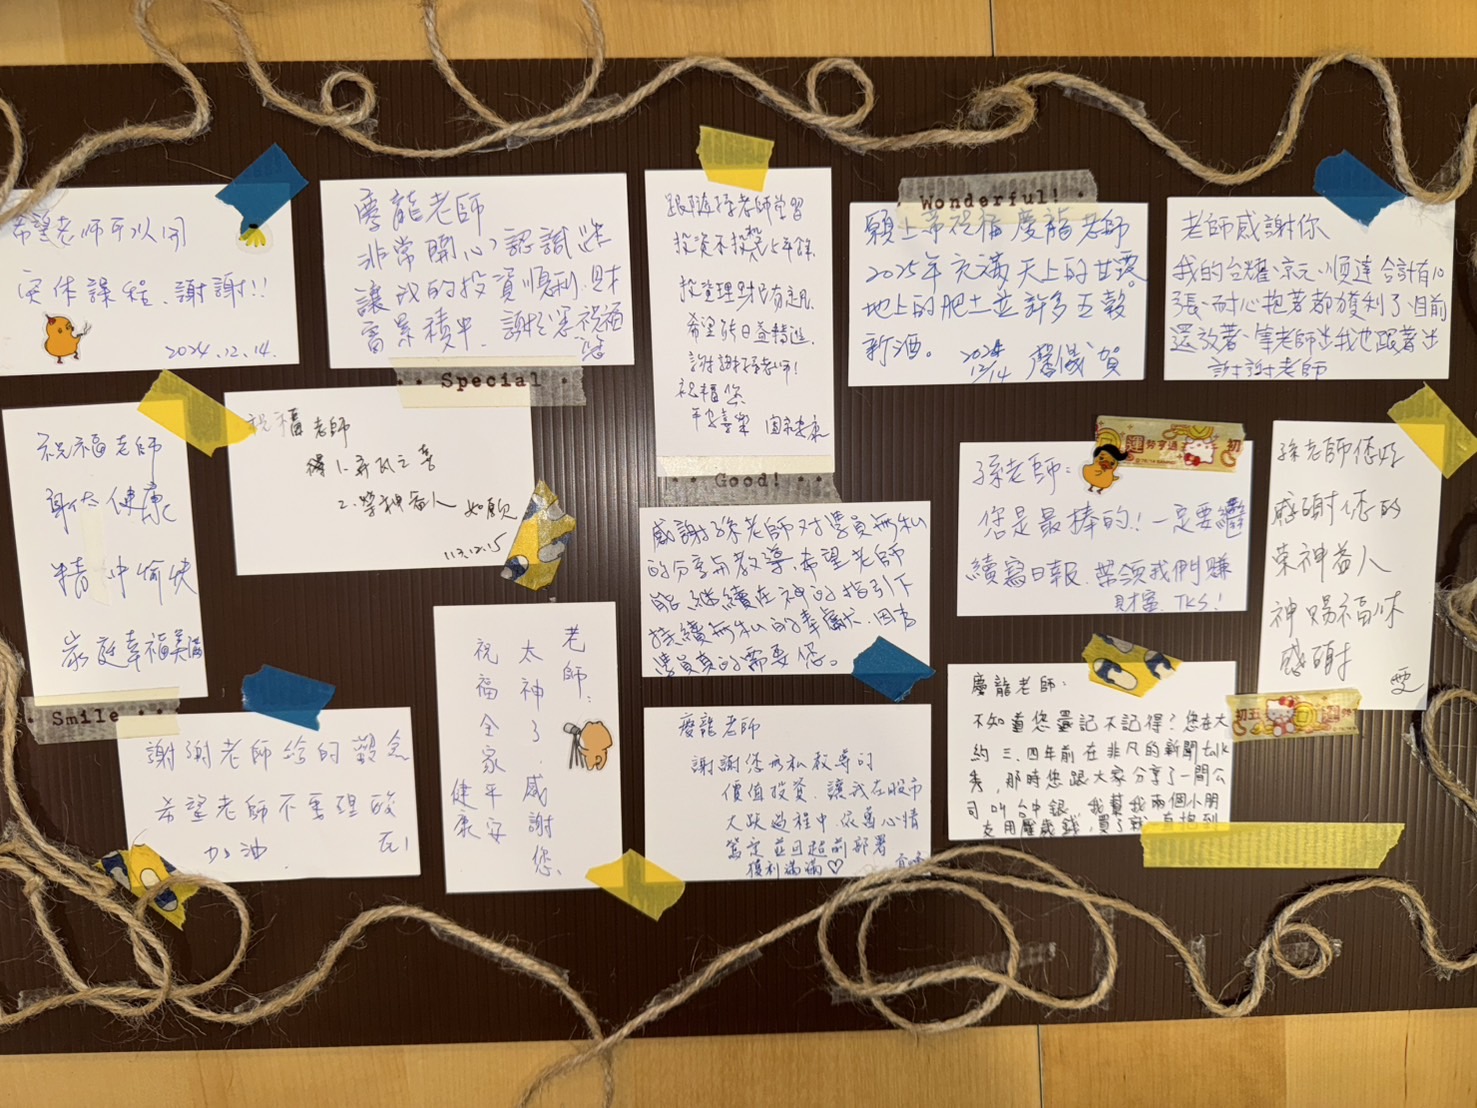 希望老師可以開
實体課程、謝謝!!
2024.12.14.
慶龍老師
非常開心認識您
讓我的投資順利、財
富累積中. 謝謝您祝福
您
跟隨孫老師學習
投資不投機上年餘,
投資理財已有
希望能日益精進,
謝謝孫老師!
祝福您
平安喜樂 闔家安康
Wonderful!
願上帝祝福慶龍老師
2025年充滿天上的甘露
地上的肥土並許多五穀
新酒。
2024
12/14 馨儀 賀
老師感謝你
我的台耀、京元、順達 合計有10
張、耐心抱著都獲利了、目前
還放著、等老師出我也跟著出
謝謝老師
Special
祝福老師
身体健康
精 愉快
家庭幸福美滿
Smile
祝福老師
得 1.弄孫之喜
2.榮神益人 如願
113.12.15
Good!
感謝孫老師对學員無私
的分享與教導、希望老師
能繼續在神的指引下
持續無私的奉獻、因為
學員真的需要您。
孫老師:
您是最棒的! 一定要繼
續寫日報、帶領我們賺
財富. TKS!
孫老師您好
感謝您的
榮神益人
神賜福你
感謝
雯
謝謝老師給的觀念
希望老師不要理酸
加油. 民!
老師:
太神了.感謝您、
祝福全家平安
健康
慶龍老師
謝謝您無私教導的
價值投資、讓我在股市
大跌過程中、依舊心情
篤定並可超前部署
獲利滿滿♡
慶龍老師:
不知道您還記不記得?您在大
約三、四年前在非凡的新聞talk
秀,那時您跟大家分享了一間公
司叫台中銀、我幫我兩個小朋
友用壓歲錢,買了